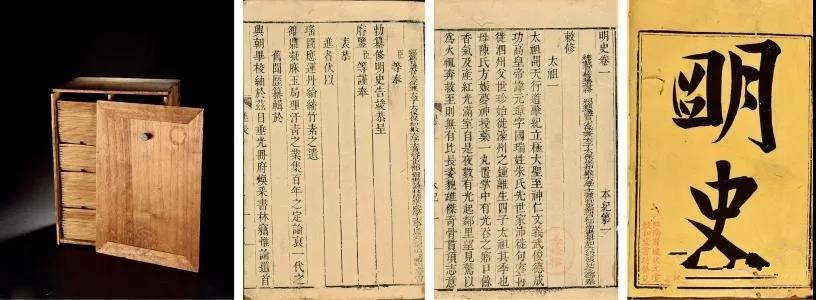 臣等奉
勅纂修明史告竣恭呈
御鑒臣等謹奉
表恭
進者伏以
瑤圖應運丹綸繪竹素之遺
神鼎凝庥玉局畢汗青之業集百年之定論裒一代之
舊聞歷纂輯於
興朝畢校紬於茲日垂光冊府煥采書林竊惟論道首
明史卷一 本紀第一
敕修
太祖一
太祖開天行道肇紀立極大聖至神仁文義武俊德成
功高皇帝諱元璋字國瑞姓朱氏先世家沛徙句容再
徙泗州父世珍始徙濠州之鍾離生四子太祖其季也
母陳氏方娠夢神授藥一丸置掌中有光吞之寤口餘
香氣及產紅光滿室自是夜數有光起鄰里望見驚以
為火輒奔救至則無有比長姿貌雄傑奇骨貫頂志意
明史